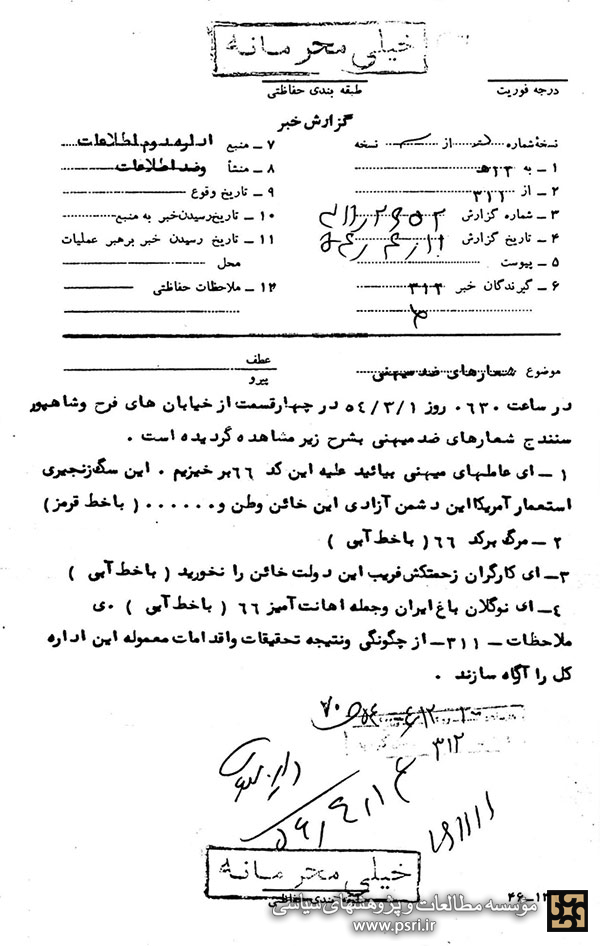 خیلی محرمانه
درجه فوریت
طبقه بندی حفاظتی
گزارش خبر
نسخه شماره از نسخه
۷ – منبع اداره دوم اطلاعات
۱ – به ۳۱۲ هـ
۸ – منشأ وضد اطلاعات
۲ – از ۳۱۱
۹ – تاریخ وقوع
۳ – شماره گزارش
۱۰ – تاریخ رسیدن خبر به منبع
۴ – تاریخ گزارش
۱۱ – تاریخ رسیدن خبر برهبر عملیات
۵ – پیوست
محل
۶ – گیرندگان خبر ۳۱۲
۱۲ – ملاحظات حفاظتی
موضوع شعارهای ضد میهنی
عطف
پیرو
در ساعت ۰۶۳۰ روز ۵۴/۳/۱ در چهارقسمت از خیابان های فرح وشاهپور
سنندج شعارهای ضد میهنی بشرح زیر مشاهده گردیده است .
۱ – ای عاملهای میهنی بیائید علیه این کد ۶۶ بر خیزیم . این سگ زنجیری
استعمار آمریکا این دشمن آزادی این خائن وطن و...... ( باخط قرمز )
۲ – مرگ برکد ۶۶ ( باخط آبی )
۳ – ای کارگران زحمتکش فریب این دولت خائن را نخورید ( باخط آبی )
۴ – ای نوگلان باغ ایران وجمله اهانت آمیز ۶۶ ( باخط آبی ) .ی
ملاحظات – ۳۱۱ – از چگونگی ونتیجه تحقیقات واقدامات معموله این اداره
کل را آگاه سازند .
۳۱۲
خیلی محرمانه
طبقه بندی حفاظتی
موسسه مطالعات و پژوهشهای سیاسی
www.psri.ir